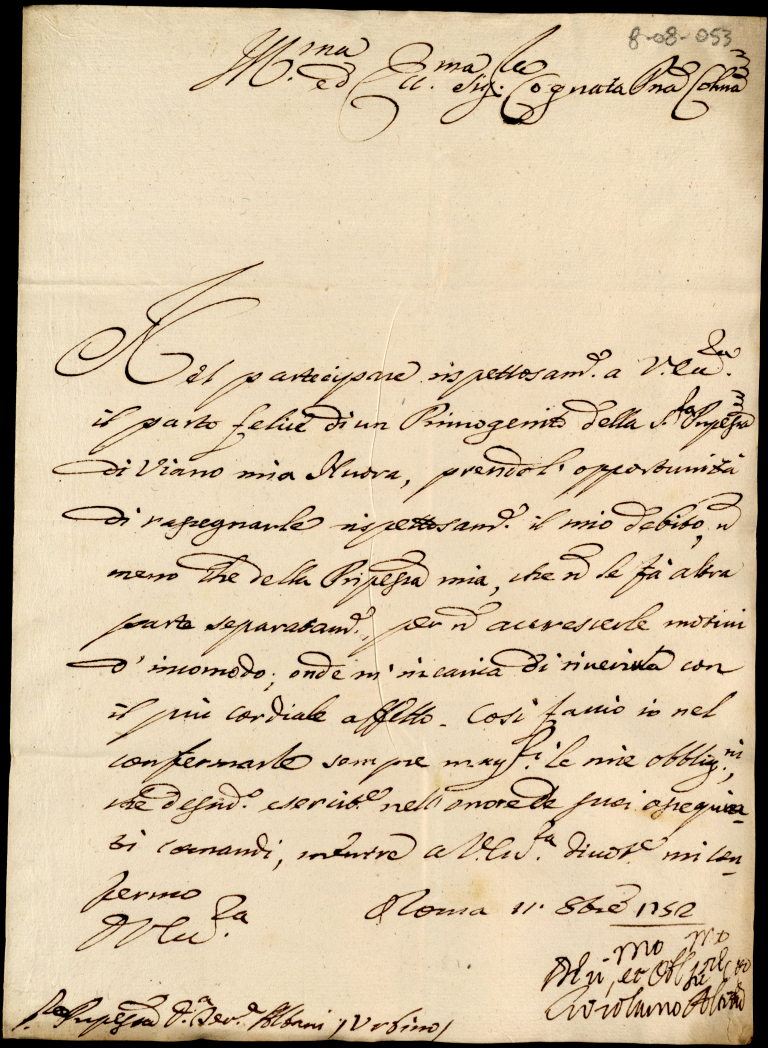 8-08-053
Ill.ma ed Ecc.ma Sig.ra Cognata Pna Colma
Nel partecipare rispettosam.e a V. Ecc.za
il parto felice di un Primogenito della S.ra Pnpessa
di Viano mia Nuora, prendo l' opportunità
di rassegnarle rispettosam.e il mio debito, n
meno che della Pnpessa mia, che n le fà altra
parte separatam.e, per n accrescerle motivi
d' incomodo; onde m' incarica di riverirla con
il più cordiale affetto. Così faccio io nel
confermarle sempre magg.ri le mie obblig.ni,
che desid.o esercit.e nell' onore de suoi ossequia=
ti comandi, mentre a V. Ecc.za divot.e mi con=
fermo
V. Ecc.za
Roma 11. 8bre 1752
mo mo
Girolamo
S.ra Pnpessa D.a Albani / Urbino /